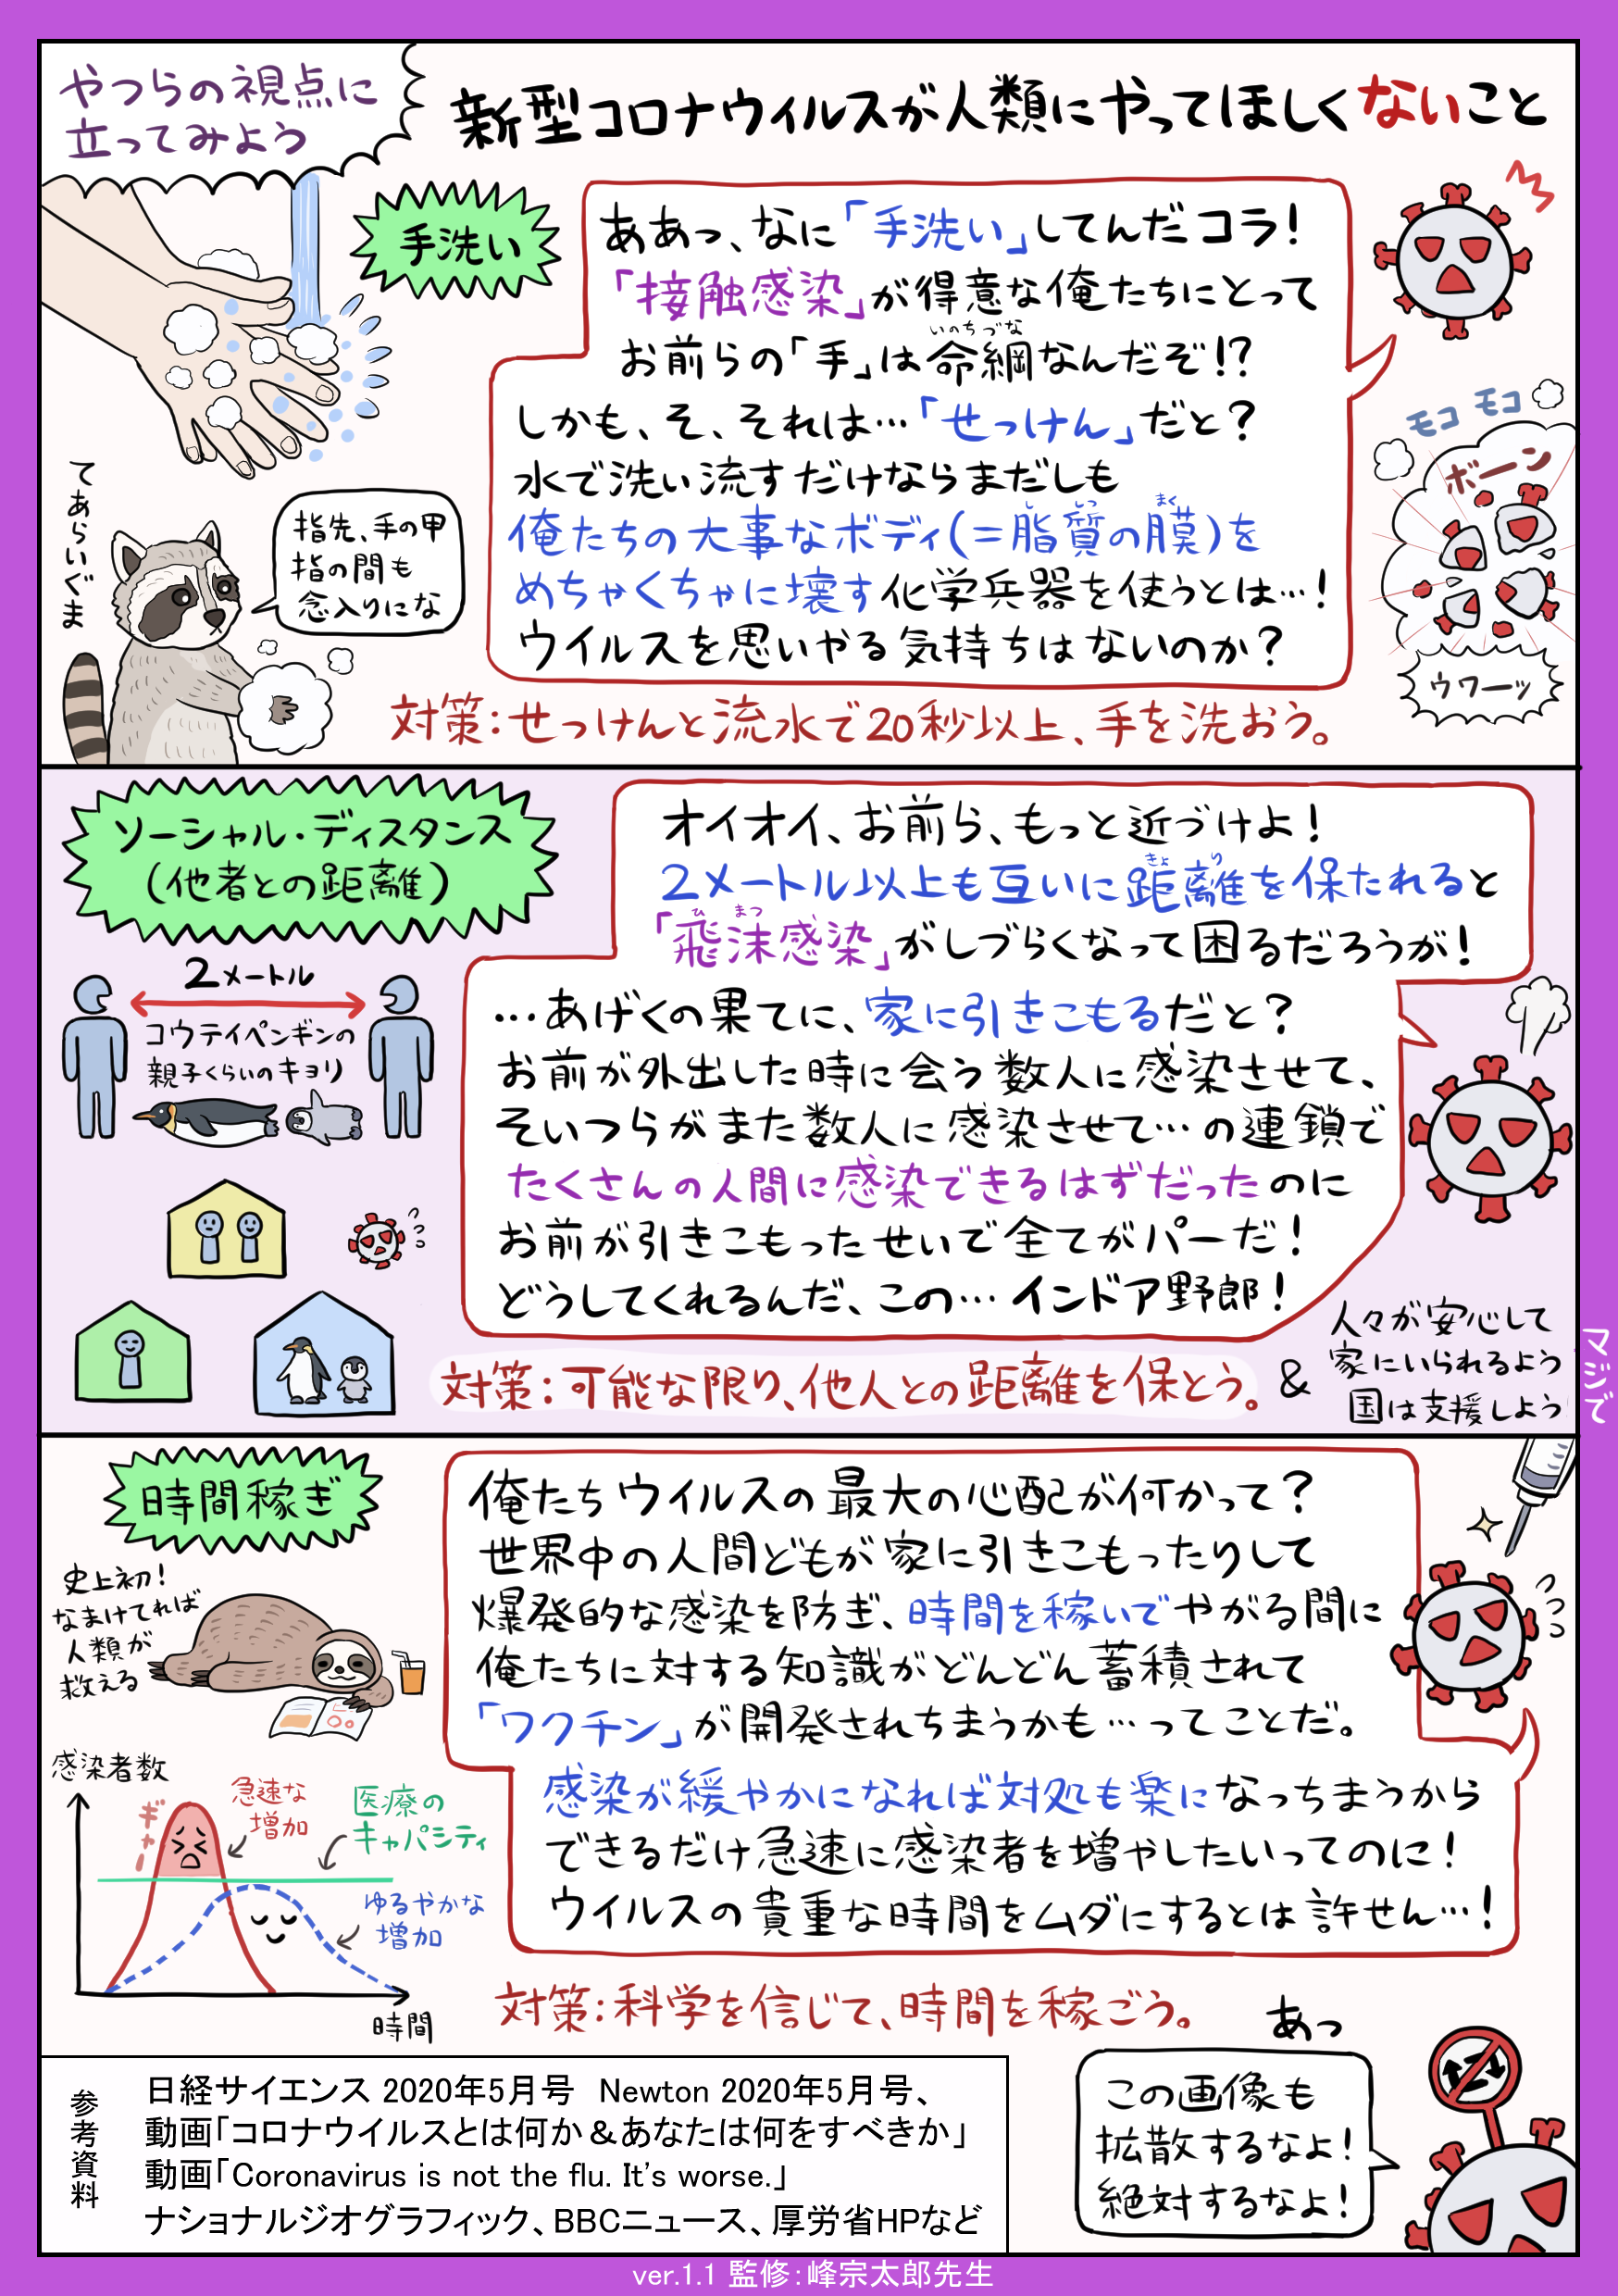 やつらの視点に
立ってみよう
新型コロナウィルスが人類にやってほしくないこと
手洗い
ああっ、なに「手洗い」してんだコラ!
「接触感染」が得意な俺たちにとって
いのちづな
お前らの「手」は命綱なんだぞ!?
しかも、そ、それは…「せっけん」だと?
水で洗い流すだけならまだしも
しつ まく
俺たちの大事なボディ(=脂質の膜)を
めちゃくちゃに壊す化学兵器を使うとは…!
ウイルスを思いやる気持ちはないのか?
モコ モコ
ボーン
ウワーッ
てあらいぐま
指先、手の甲
指の間も
念入りにな
対策:せっけんと流水で20秒以上、手を洗おう。
ソーシャル・ディスタンス
(他者との距離)
オイオイ、お前ら、もっと近づけよ!
きょり
2メートル以上も互いに距離を保たれると
ひまつ
「飛沫感染」がしづらくなって困るだろうが!
…あげくの果てに、家に引きこもるだと?
お前が外出した時に会う数人に感染させて、
そいつらがまた数人に感染させて…の連鎖で
たくさんの人間に感染できるはずだったのに
お前が引きこもったせいで全てがパーだ!
どうしてくれるんだ、この…インドア野郎!
2メートル
コウテイペンギンの
親子くらいのキョリ
対策:可能な限り、他人との距離を保とう。
&
人々が安心して
家にいられるよう
国は支援しよう
マジで
時間稼ぎ
俺たちウイルスの最大の心配が何かって?
世界中の人間どもが家に引きこもったりして
爆発的な感染を防ぎ、時間を稼いでやがる間に
俺たちに対する知識がどんどん蓄積されて
「ワクチン」が開発されちまうかも…ってことだ。
感染が緩やかになれば対処も楽になっちまうから
できるだけ急速に感染者を増やしたいってのに!
ウイルスの貴重な時間をムダにするとは許せん…!
史上初!
なまけてれば
人類が
救える
感染者数
ギャー
急速な
増加
医療の
キャパシティ
ゆるやかな
増加
時間
対策:科学を信じて、時間を稼ごう。
あっ
この画像も
拡散するなよ!
絶対するなよ!
参考資料
日経サイエンス 2020年5月号 Newton 2020年5月号、
動画「コロナウイルスとは何か&あなたは何をすべきか」
動画「Coronavirus is not the flu. It's worse.」
ナショナルジオグラフィック、BBCニュース、厚労省HPなど
ver.1.1 監修:峰宗太郎先生